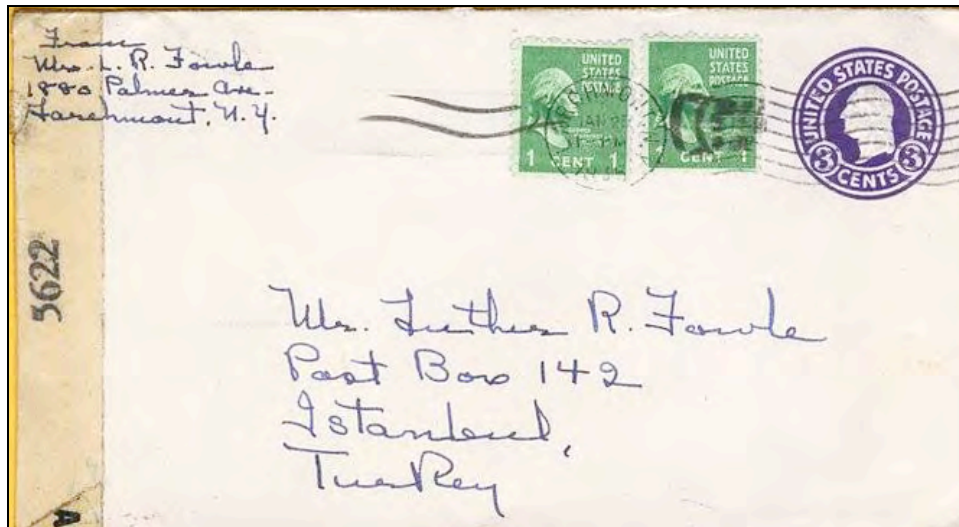 From
Mrs. L. R. Fowle
1880 Palmer Ave.
Larchmont, N.Y.
UNITED
STATES
POSTAGE
1 CENT 1
UNITED
STATES
POSTAGE
1 CENT 1
UNITED STATES POSTAGE
3 CENTS 3
5622
Mr. Luther R. Fowle
Post Box 142
Istanbul,
Turkey
A